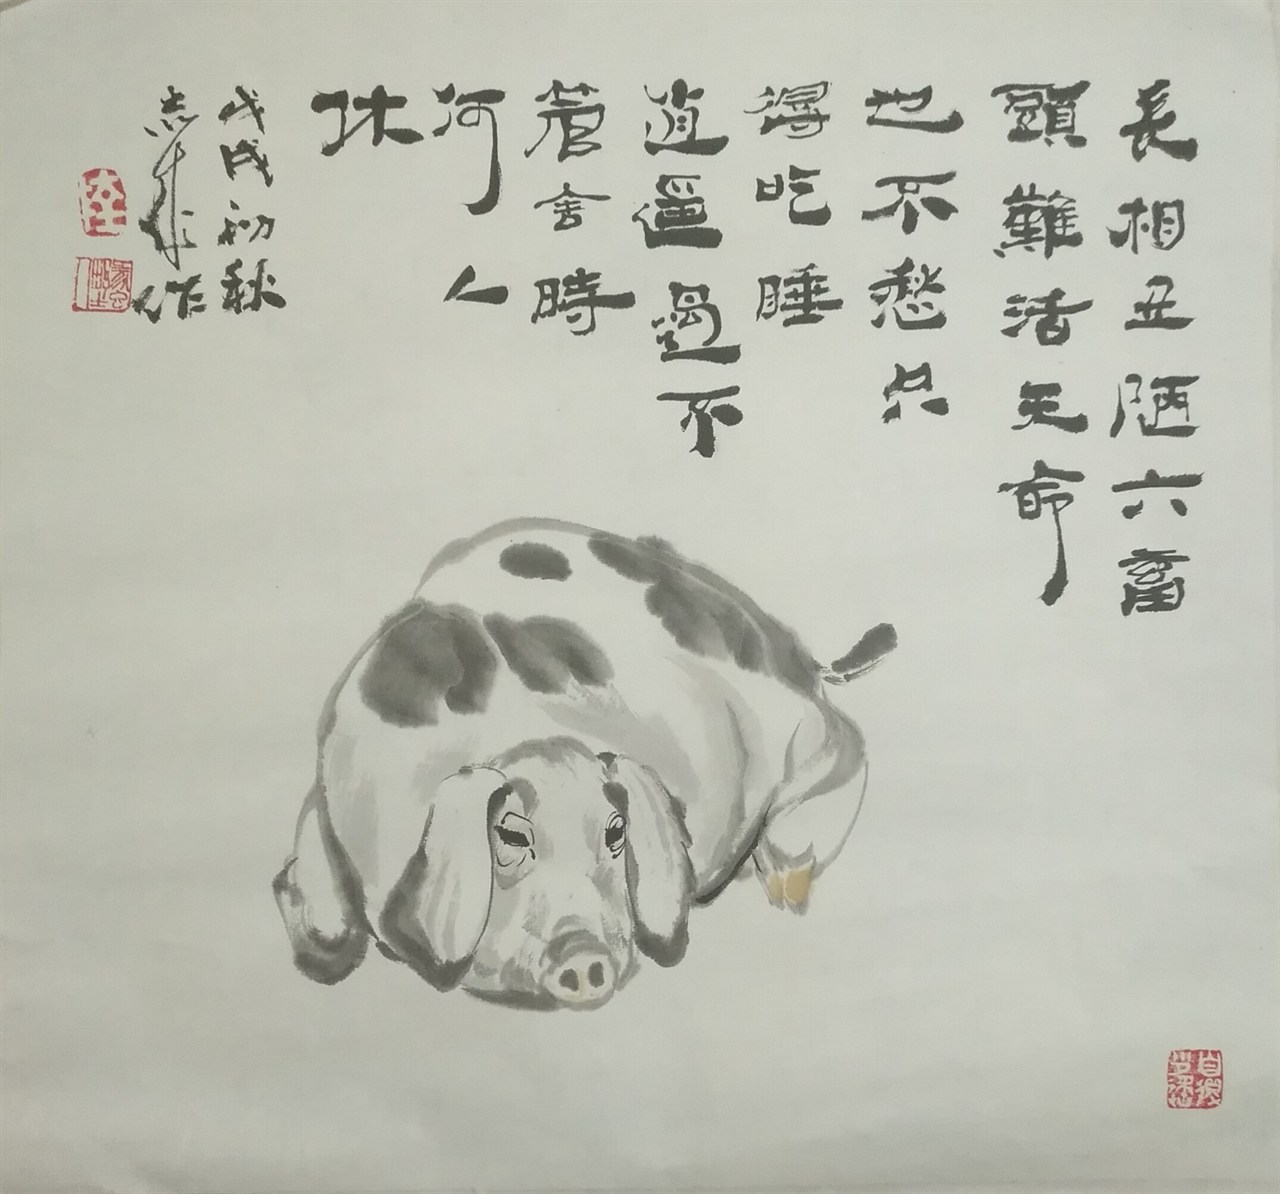 長相丑陋六畜
頭難活无命
也不愁只
得吃睡
逍遥過不
管舍時
何人
休
戊戌初秋
志
作
自